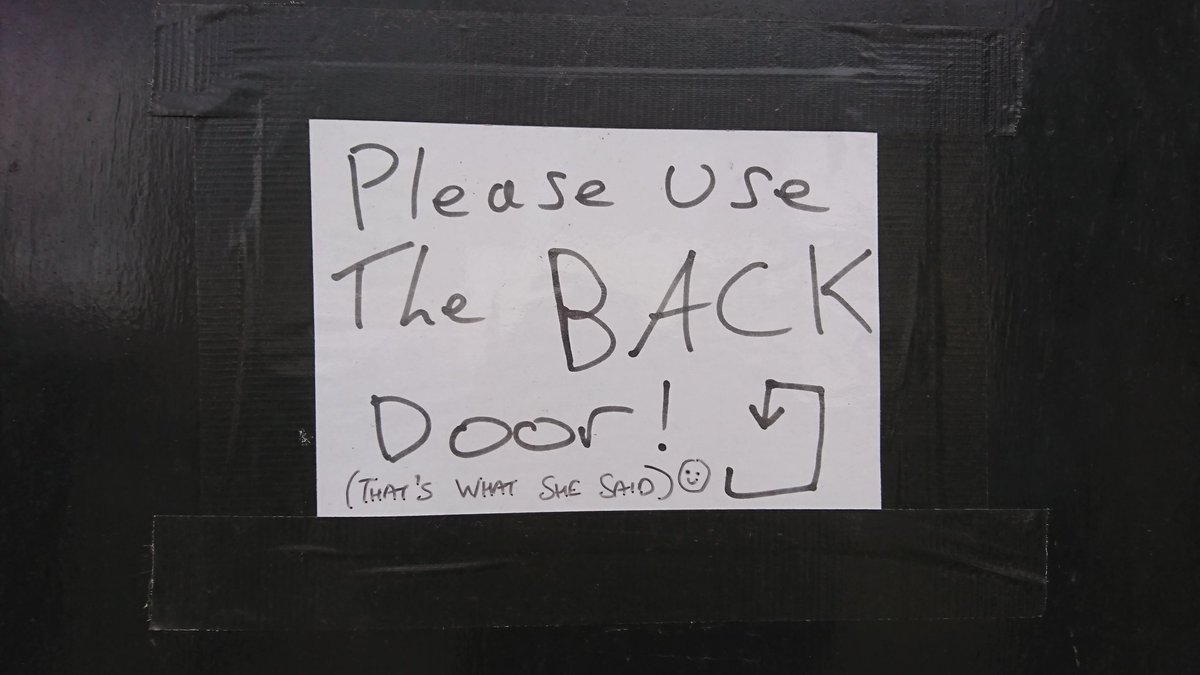 Please use
The BACK
Door!
(THAT'S WHAT SHE SAID)